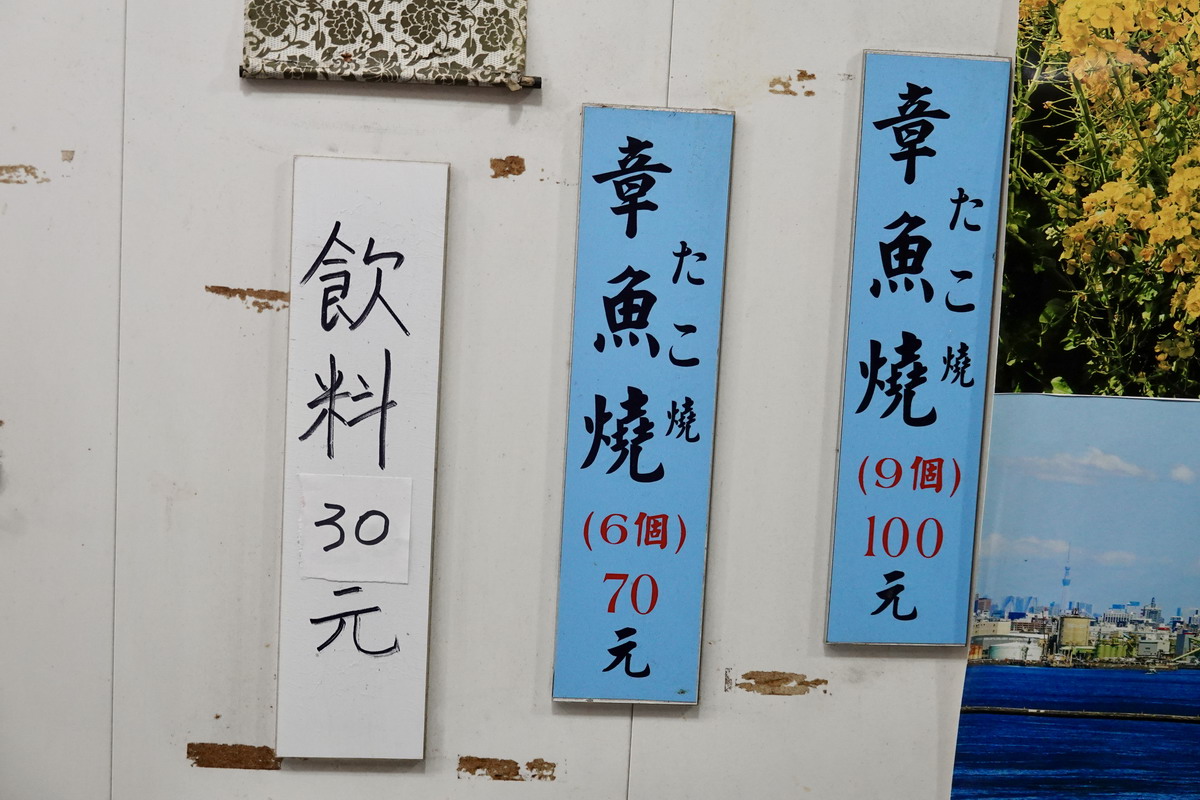 飲料
30
元
章魚燒
たこ燒
(6個)
70
元
章魚燒
たこ燒
(9個)
100
元